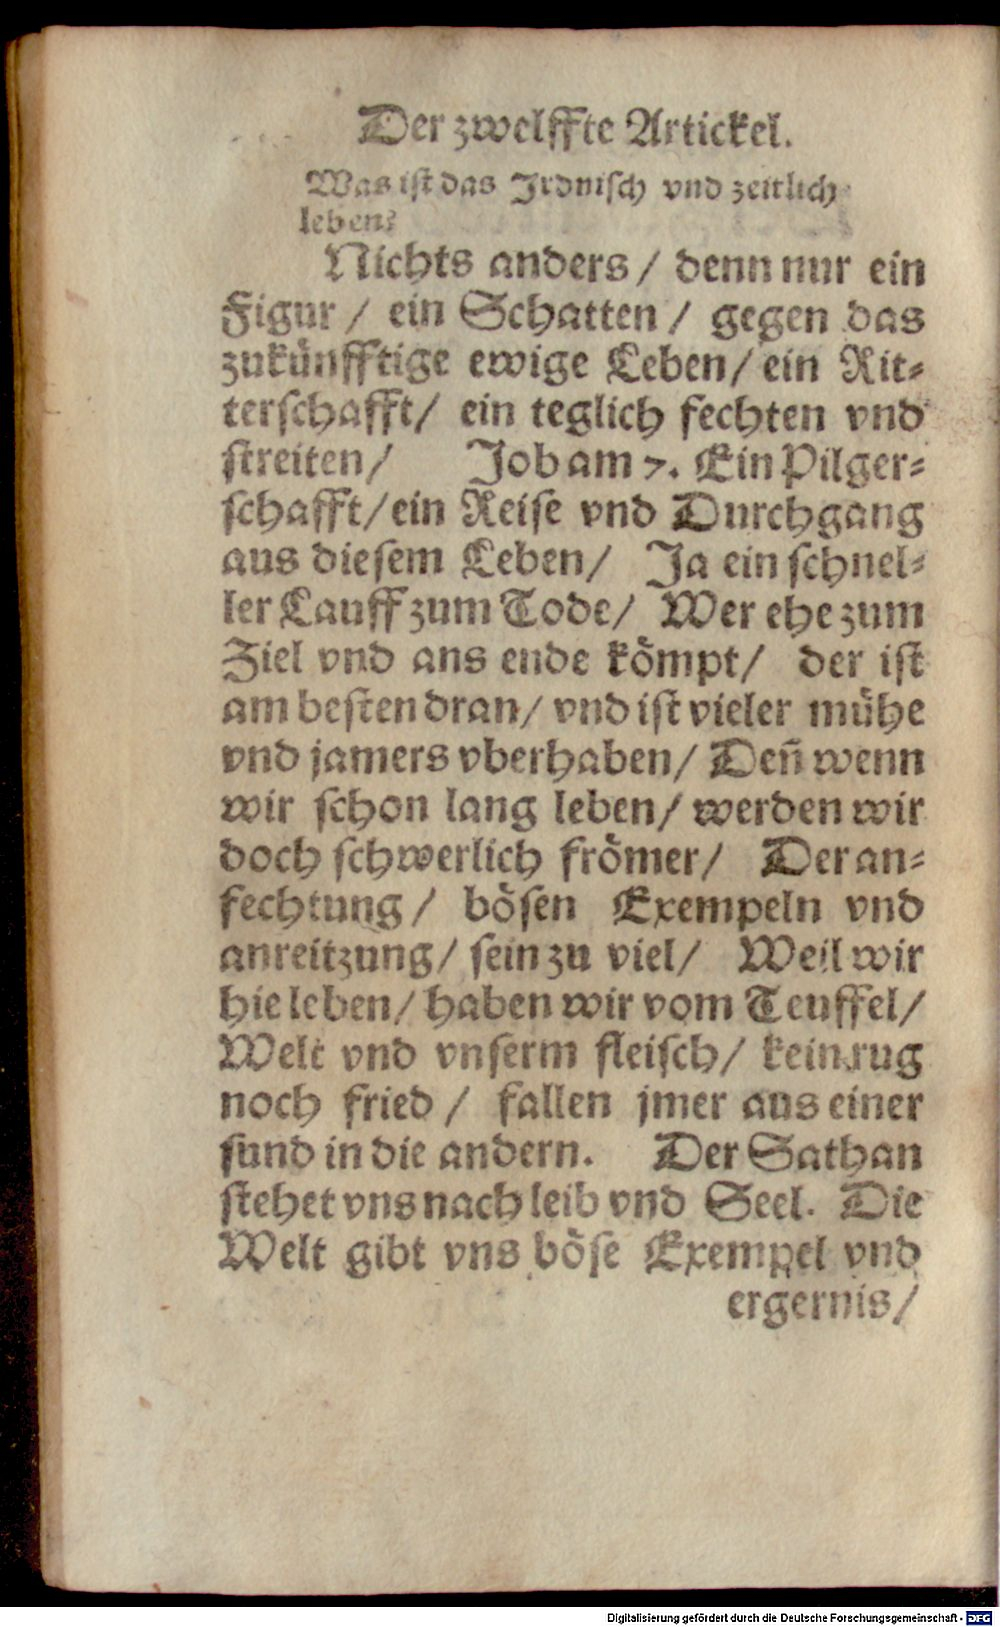 Der zwelffte Artickel.
Was iſt das Jrdniſch vnd zeitlich
leben?
Nichts anders / denn nur ein
Figur / ein Schatten / gegen das
zukuͤnfftige ewige Leben / ein Rit⸗
terſchafft / ein teglich fechten vnd
ſtreiten / Job am 7. Ein Pilger⸗
ſchafft / ein Reiſe vnd Durchgang
aus dieſem Leben / Ja ein ſchnel⸗
ler Lauff zum Tode / Wer ehe zum
Ziel vnd ans ende koͤmpt / der iſt
am beſten dran / vnd iſt vieler muͤhe
vnd jamers vberhaben / Den̄ wenn
wir ſchon lang leben / werden wir
doch ſchwerlich froͤmer / Der an⸗
fechtung / boͤſen Exempeln vnd
anreitzung / ſein zu viel / Weil wir
hie leben / haben wir vom Teuffel /
Welt vnd vnſerm fleiſch / kein rug
noch fried / fallen jmer aus einer
ſund in die andern. Der Sathan
ſtehet vns nach leib vnd Seel. Die
Welt gibt vns boͤſe Exempel vnd
ergernis /
Digitalisierung gefördert durch die Deutsche Forschungsgemeinschaft - DFG